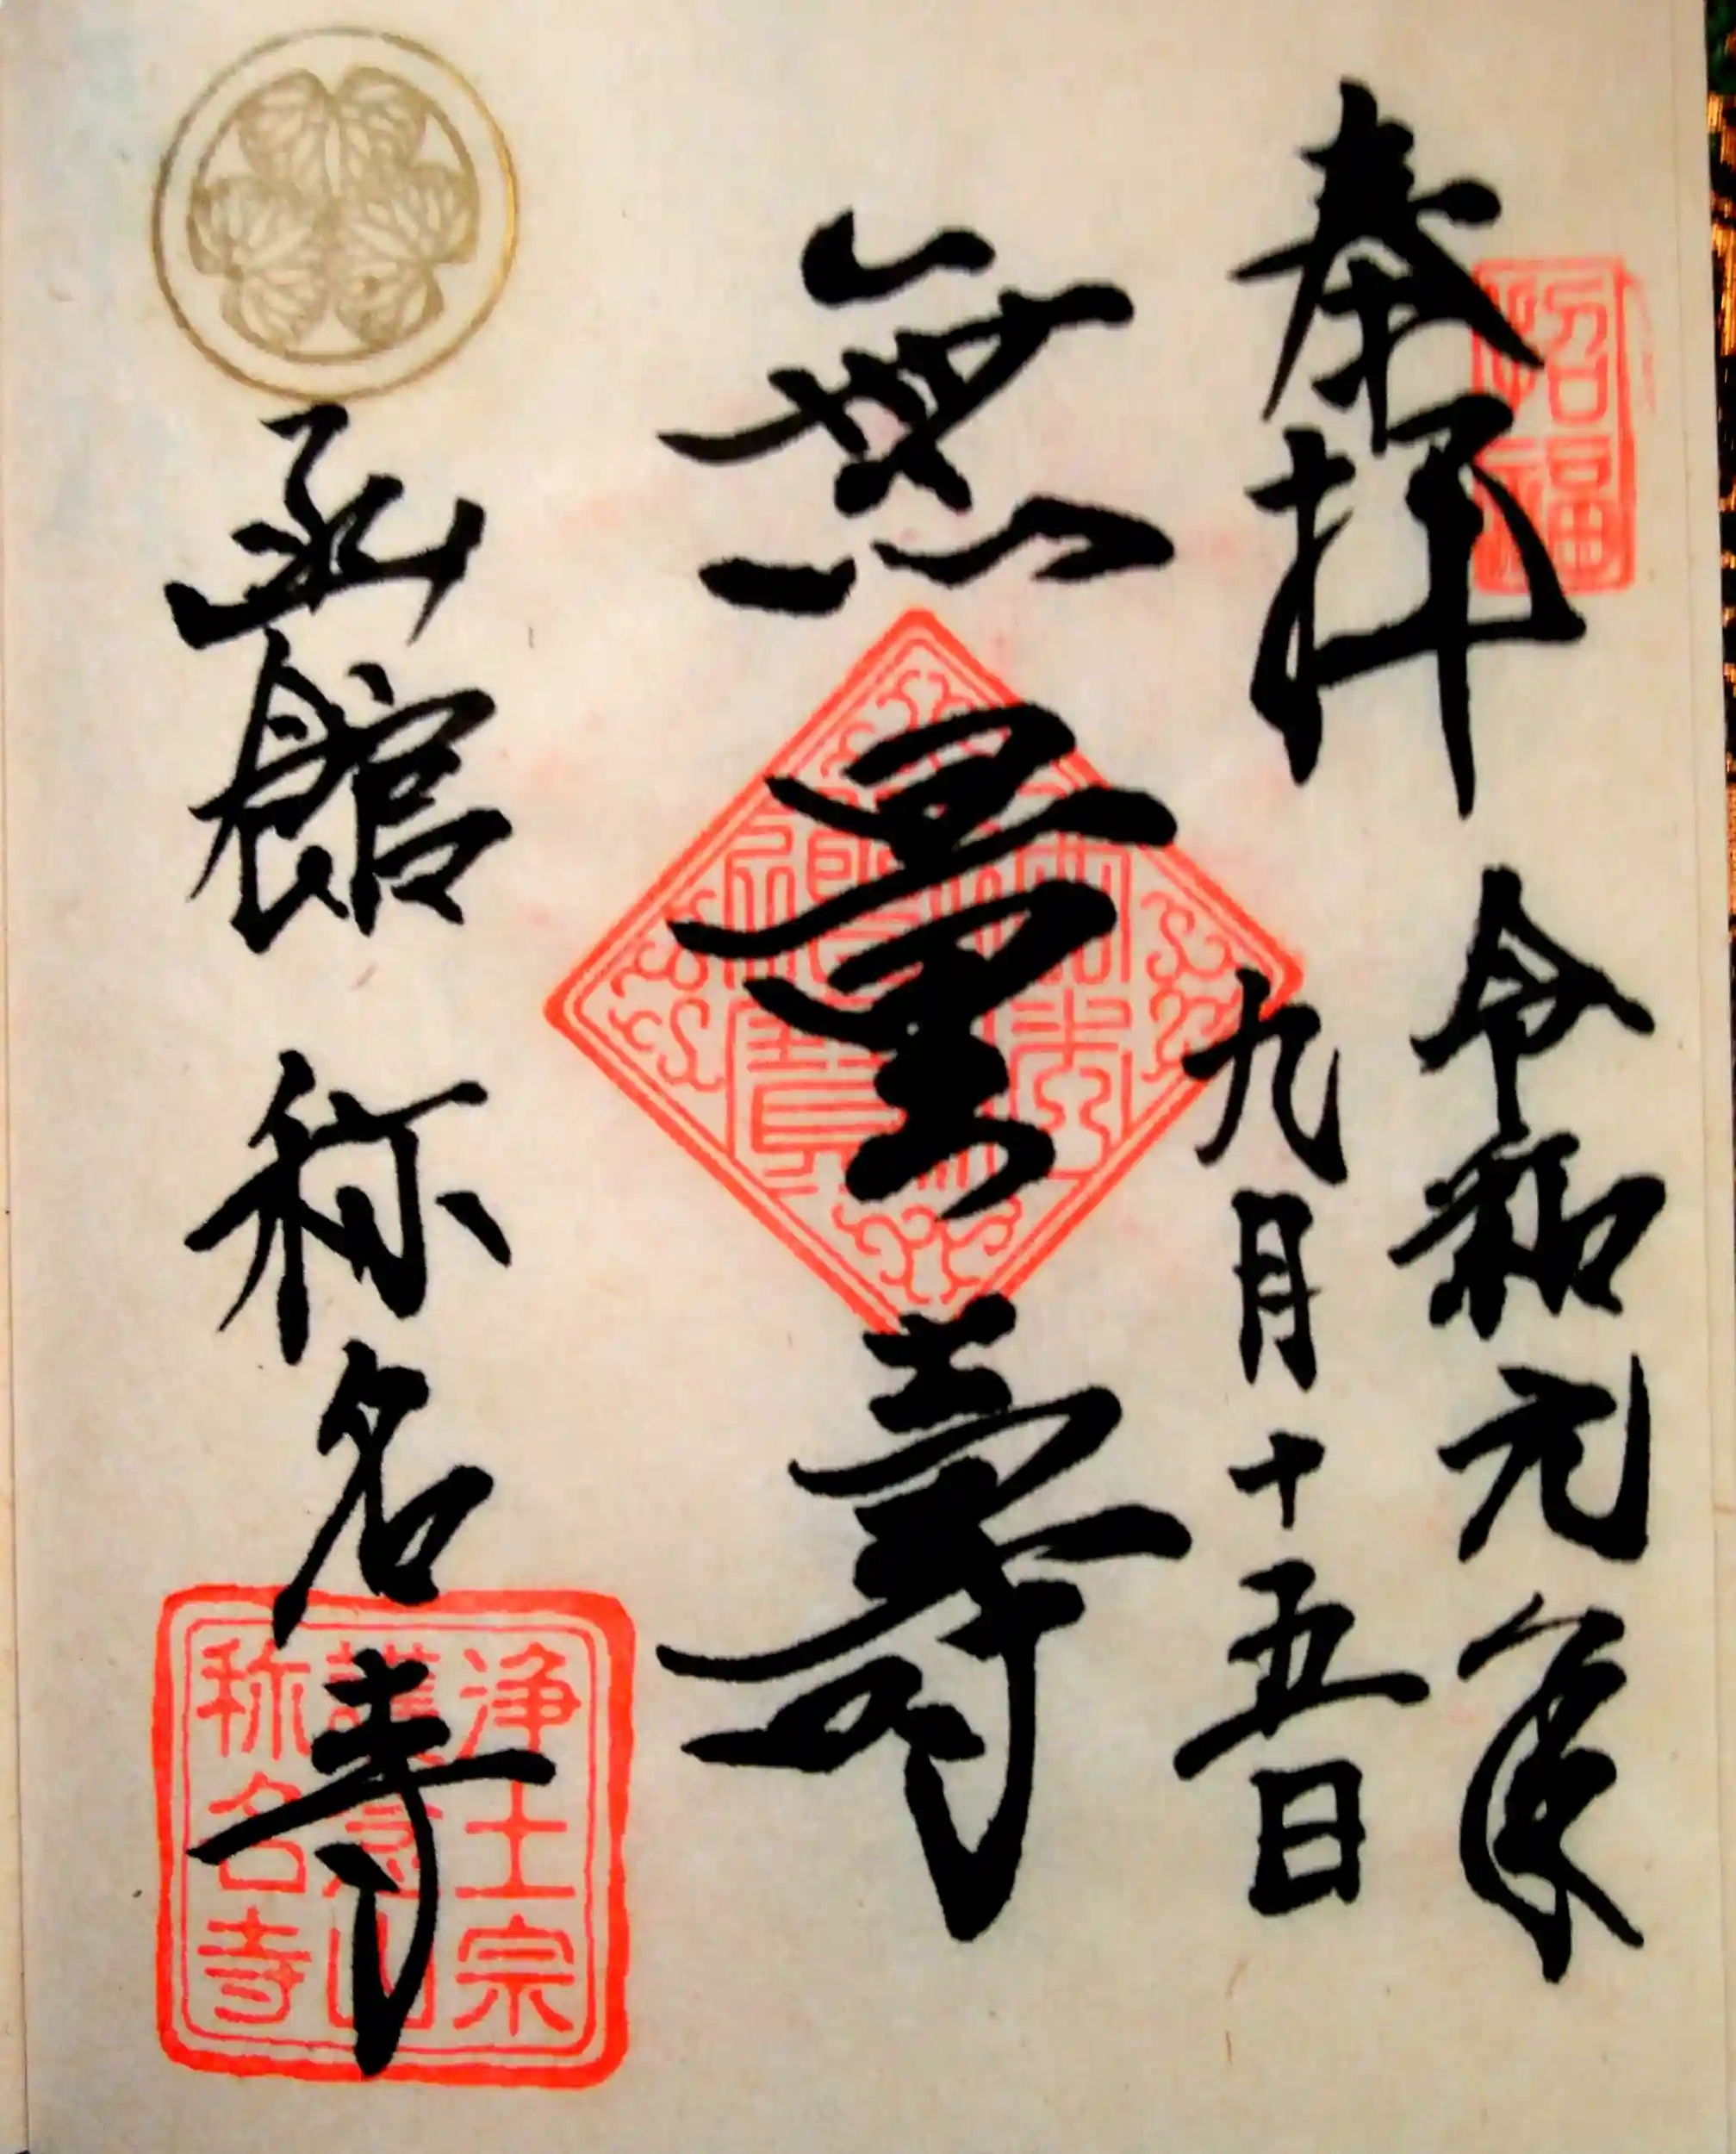 奉拝
招福
令和元年
九月十五日
無量壽
函館 称名寺
浄土宗
護念山
称名寺